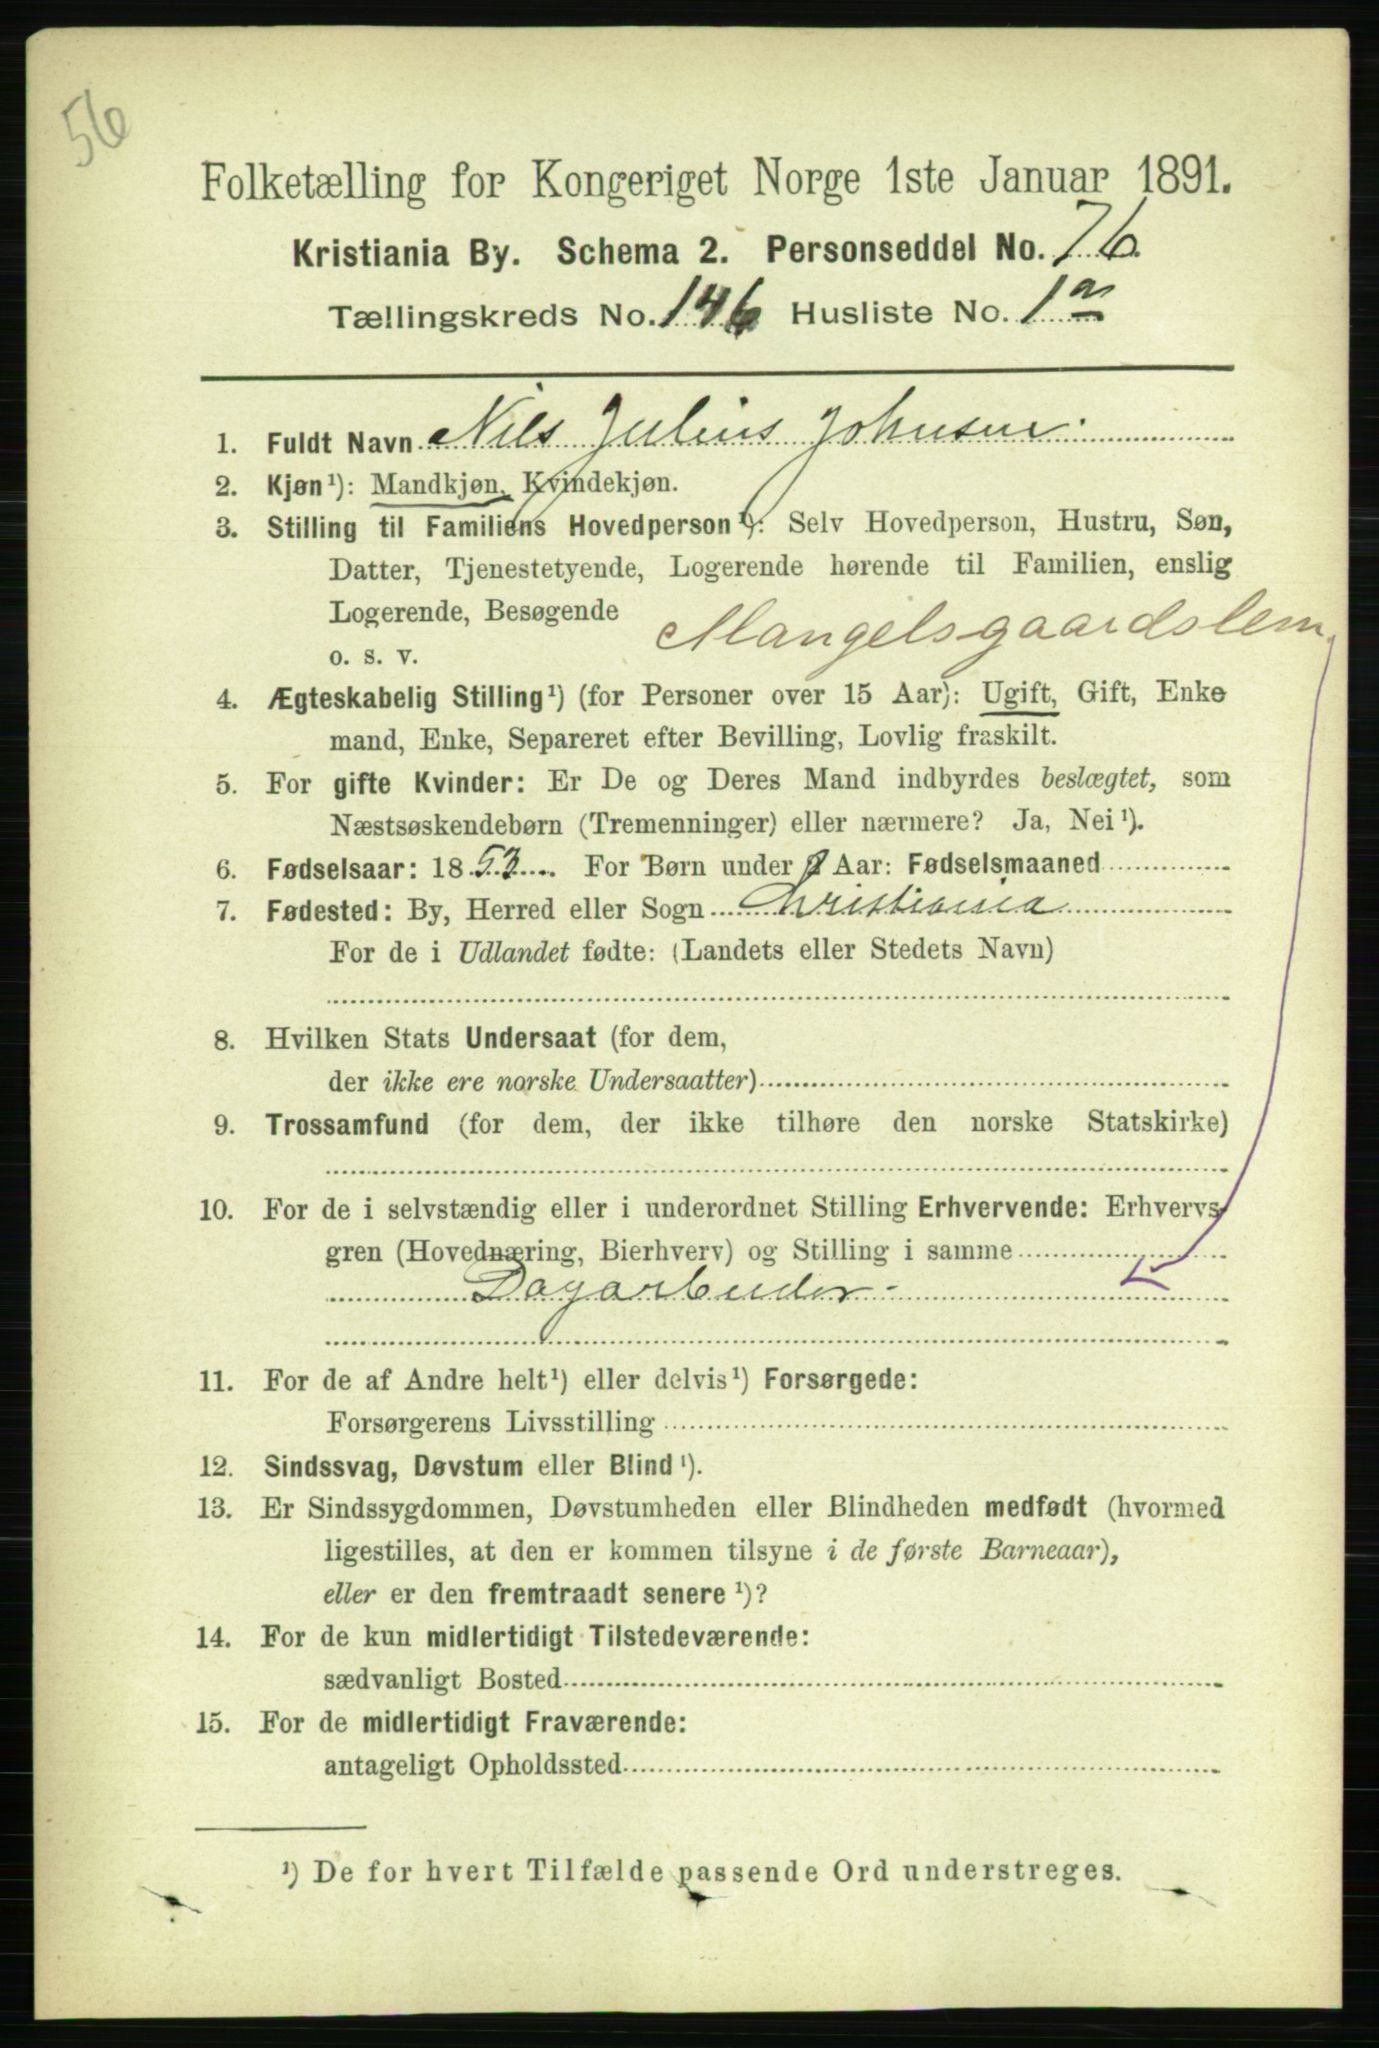 56
Folketælling for Kongeriget Norge 1ste Januar 1891.
Kristiania By. Schema 2. Personseddel No. 76.
Tællingskreds No. 146 Husliste No. 1a
1. Fuldt Navn Nils Julius Johnsen.
2. Kjøn¹): Mandkjøn, Kvindekjøn.
3. Stilling til Familiens Hovedperson¹): Selv Hovedperson, Hustru, Søn,
Datter, Tjenestetyende, Logerende hørende til Familien, enslig
Logerende, Besøgende
o. s. v.
Mangelsgaardslem.
4. Ægteskabelig Stilling¹) (for Personer over 15 Aar): Ugift, Gift, Enke
mand, Enke, Separeret efter Bevilling, Lovlig fraskilt.
5. For gifte Kvinder: Er De og Deres Mand indbyrdes beslægtet, som
Næstsøskendebørn (Tremenninger) eller nærmere? Ja, Nei¹).
6. Fødselsaar: 1853. For Børn under 2 Aar: Fødselsmaaned
7. Fødested: By, Herred eller Sogn Christiania
For de i Udlandet fødte: (Landets eller Stedets Navn)
8. Hvilken Stats Undersaat (for dem,
der ikke ere norske Undersaatter)
9. Trossamfund (for dem, der ikke tilhøre den norske Statskirke)
10. For de i selvstændig eller i underordnet Stilling Erhvervende: Erhvervs-
gren (Hovednæring, Bierhverv) og Stilling i samme
Dagarbeider-
11. For de af Andre helt¹) eller delvis¹) Forsørgede:
Forsørgerens Livsstilling
12. Sindssvag, Døvstum eller Blind¹).
13. Er Sindssygdommen, Døvstumheden eller Blindheden medfødt (hvormed
ligestilles, at den er kommen tilsyne i de første Barneaar),
eller er den fremtraadt senere¹)?
14. For de kun midlertidigt Tilstedeværende:
sædvanligt Bosted
15. For de midlertidigt Fraværende:
antageligt Opholdssted
¹) De for hvert Tilfælde passende Ord understreges.